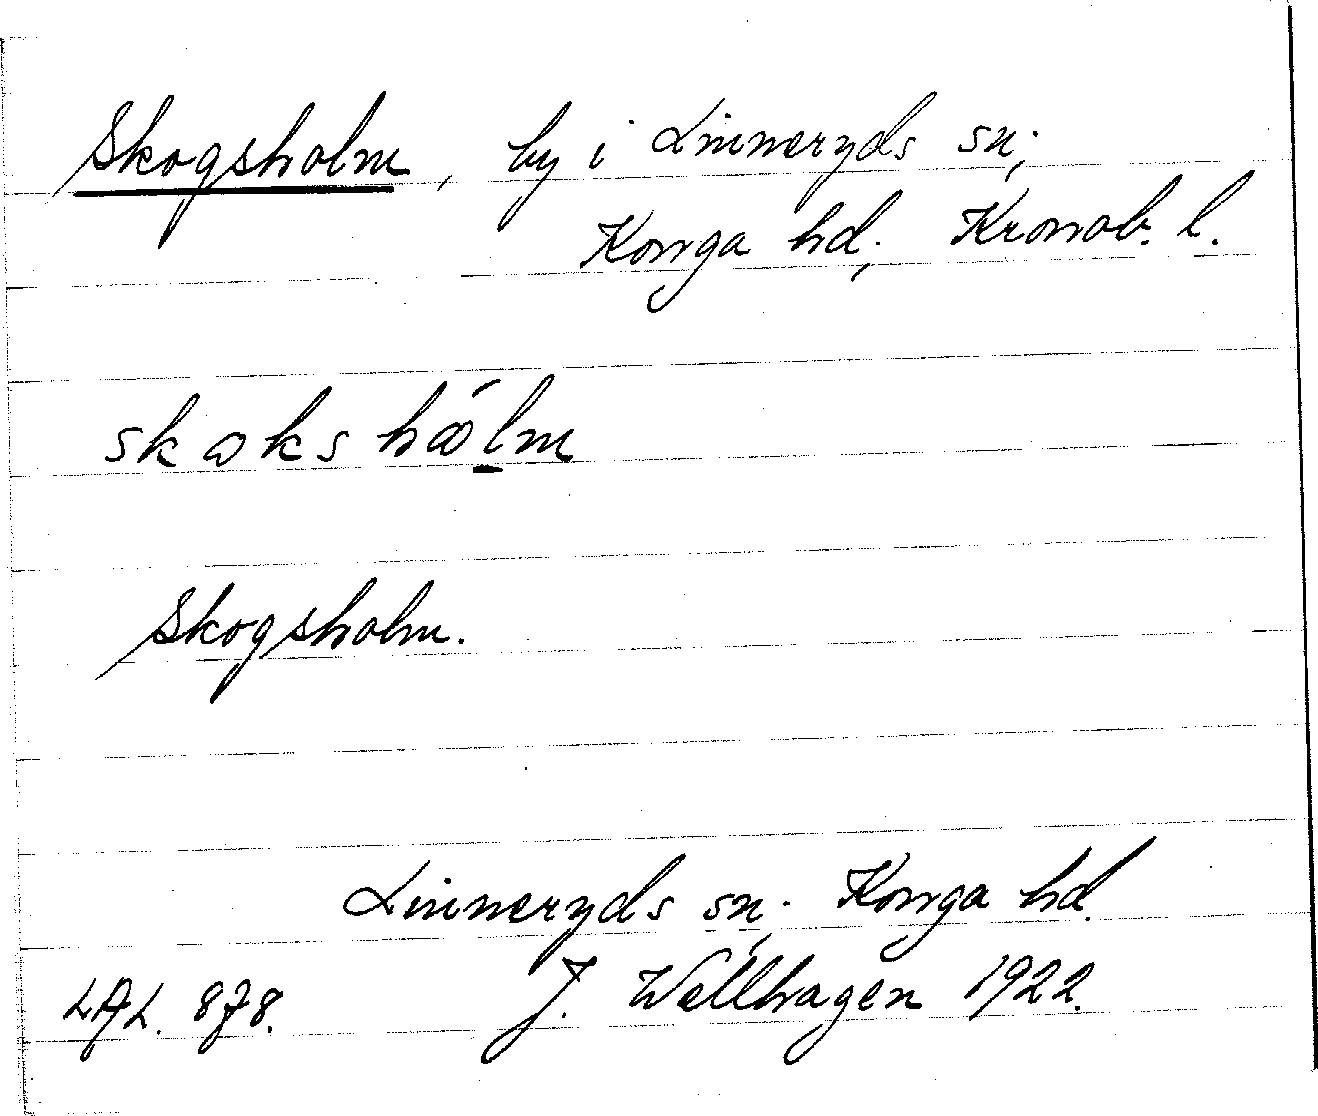 Skogsholm, by i Linneryds sn,
Konga hd, Kronob. l.
skɷks hɷ́lm
Skogsholm.
Linneryds sn. Konga hd.
LAL. 878. J. Wellhagen 1922.